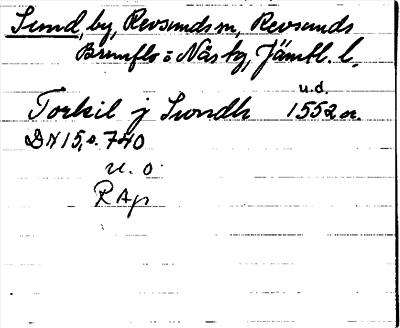 Sund, by, Revsunds sn, Revsunds
Brunflo o Näs tg, Jämtl. l.
u.d.
Torkil j Swndh 1552 or.
DN 15, s. 740
u. o
R Ap